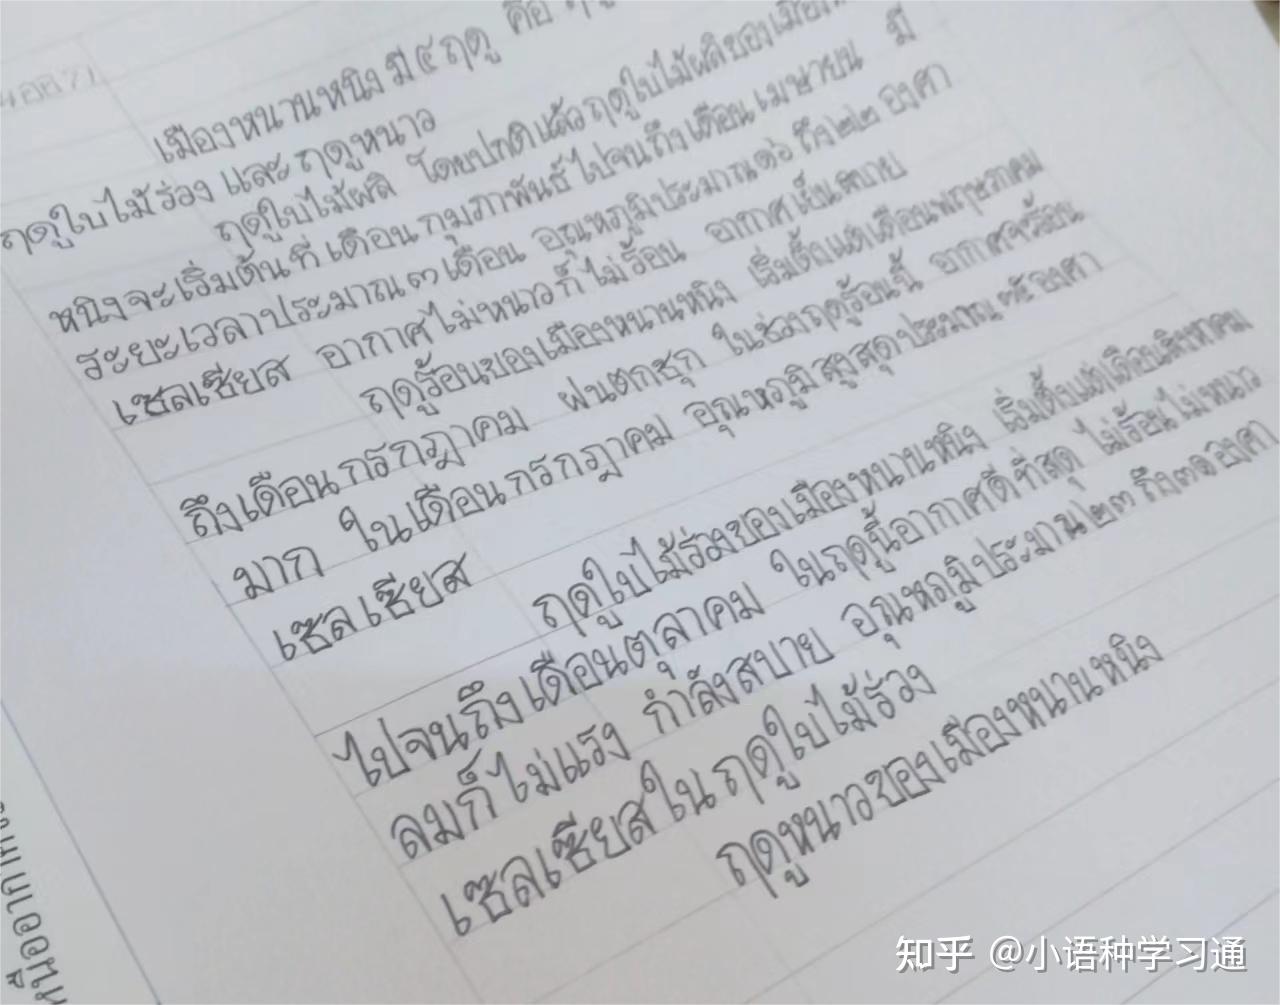 เมืองหนานหนิง มี ๔ ฤดู คือ
ฤดูใบไม้ร่วง และ ฤดูหนาว
ฤดูใบไม้ผลิ โดยปกติแล้วฤดูใบไม้ผลิของเมือง
หนิงจะเริ่มต้นที่ เดือน กุมภาพันธ์ ไปจนถึงเดือน เมษายน มี
ระยะเวลาประมาณ ๓ เดือน อุณหภูมิประมาณ๑๖ ถึง ๒๒ องศา
เซลเซียส อากาศไม่หนาวก็ไม่ร้อน อากาศเย็นสบาย
ฤดูร้อนของเมืองหนานหนิง เริ่มตั้งแต่เดือนพฤษภาคม
ถึงเดือน กรกฎาคม ฝนตกชุก ในช่วงฤดูร้อนนี้ อากาศจะร้อน
มาก ในเดือน กรกฎาคม อุณหภูมิสูงสุดประมาณ ๓๕ องศา
เซลเซียส
ฤดูใบไม้ร่วงของเมืองหนานหนิง เริ่มตั้งแต่เดือนสิงหาคม
ไปจนถึงเดือนตุลาคม ในฤดูนี้อากาศดีที่สุด ไม่ร้อนไม่หนาว
ลมก็ไม่แรง กำลังสบาย อุณหภูมิประมาน๒๓ ถึง๓๑ องศา
เซลเซียสใน ฤดูใบไม้ร่วง
ฤดูหนาวของเมืองหนานหนิง
知乎 @小语种学习通